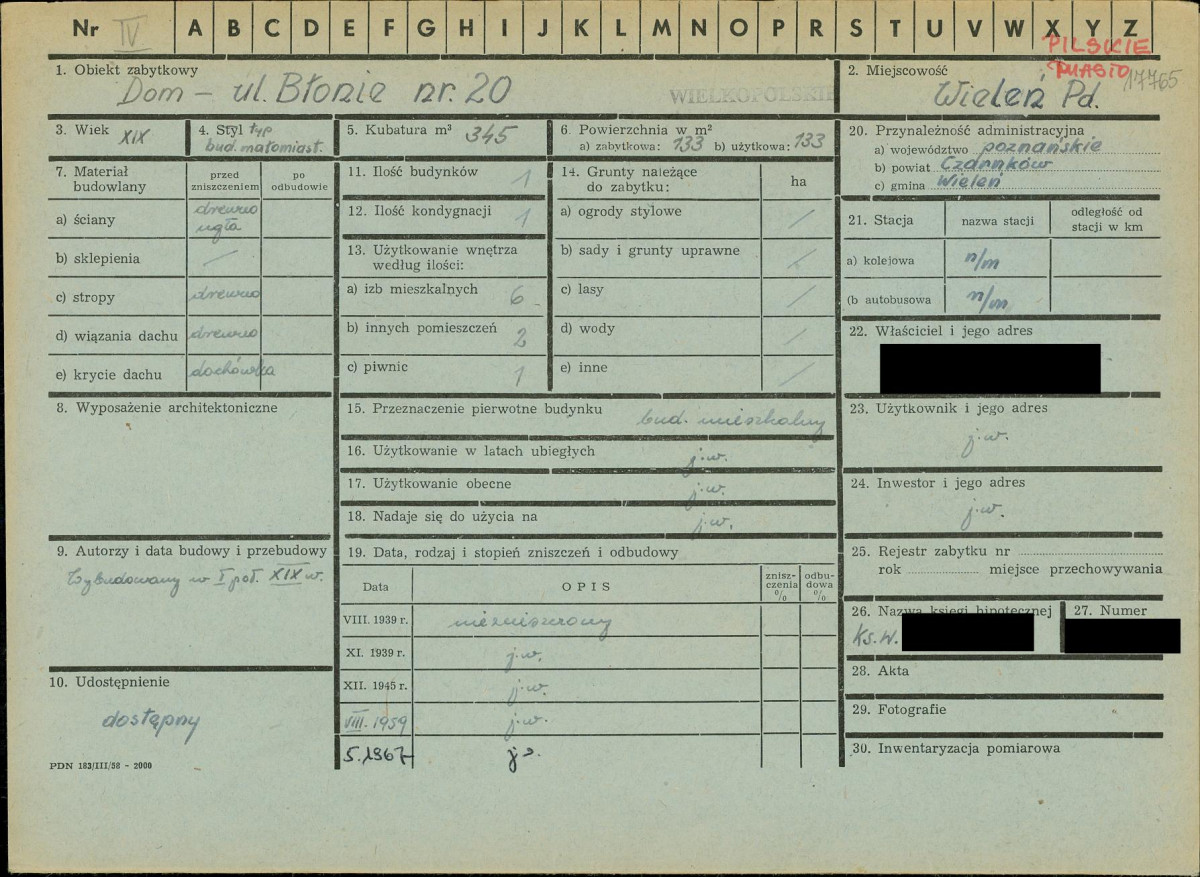 Nr IV A B C D E F G H I J K L M N O P R S T U V W X Y Z
PILSKIE
MIASTO 17765
1. Obiekt zabytkowy
Dom – ul. Błonie nr. 20
WIELKOPOLSKIE
2. Miejscowość
Wieleń Pd.
3. Wiek XIX
4. Styl typ
bud. małomiast.
5. Kubatura m³ 345
6. Powierzchnia w m²
a) zabytkowa: 133 b) użytkowa: 133
7. Materiał budowlany
przed zniszczeniem
po odbudowie
a) ściany drewno
cegła
b) sklepienia /
c) stropy drewno
d) wiązania dachu drewno
e) krycie dachu dachówka
8. Wyposażenie architektoniczne
9. Autorzy i data budowy i przebudowy
Wybudowany w I poł. XIX w.
10. Udostępnienie
dostępny
PDN 183/III/58 - 2000
11. Ilość budynków 1
12. Ilość kondygnacji 1
13. Użytkowanie wnętrza
według ilości:
a) izb mieszkalnych 6
b) innych pomieszczeń 2
c) piwnic 1
14. Grunty należące
do zabytku: ha
a) ogrody stylowe /
b) sady i grunty uprawne /
c) lasy /
d) wody /
e) inne /
15. Przeznaczenie pierwotne budynku bud. mieszkalny
16. Użytkowanie w latach ubiegłych j.w.
17. Użytkowanie obecne j.w.
18. Nadaje się do użycia na j.w.
19. Data, rodzaj i stopień zniszczeń i odbudowy
Data OPIS znisz-czenia % odbu-dowa %
VIII. 1939 r. niezniszczony
XI. 1939 r. j.w.
XII. 1945 r. j.w.
VIII. 1959 j.w.
5.1967
20. Przynależność administracyjna
a) województwo poznańskie
b) powiat Czarnków
c) gmina Wieleń
21. Stacja nazwa stacji odległość od stacji w km
a) kolejowa n/m
(b autobusowa n/m
22. Właściciel i jego adres
23. Użytkownik i jego adres
j.w.
24. Inwestor i jego adres
j.w.
25. Rejestr zabytku nr
rok miejsce przechowywania
26. Nazwa księgi hipotecznej
Ks.W.
27. Numer
28. Akta
29. Fotografie
30. Inwentaryzacja pomiarowa